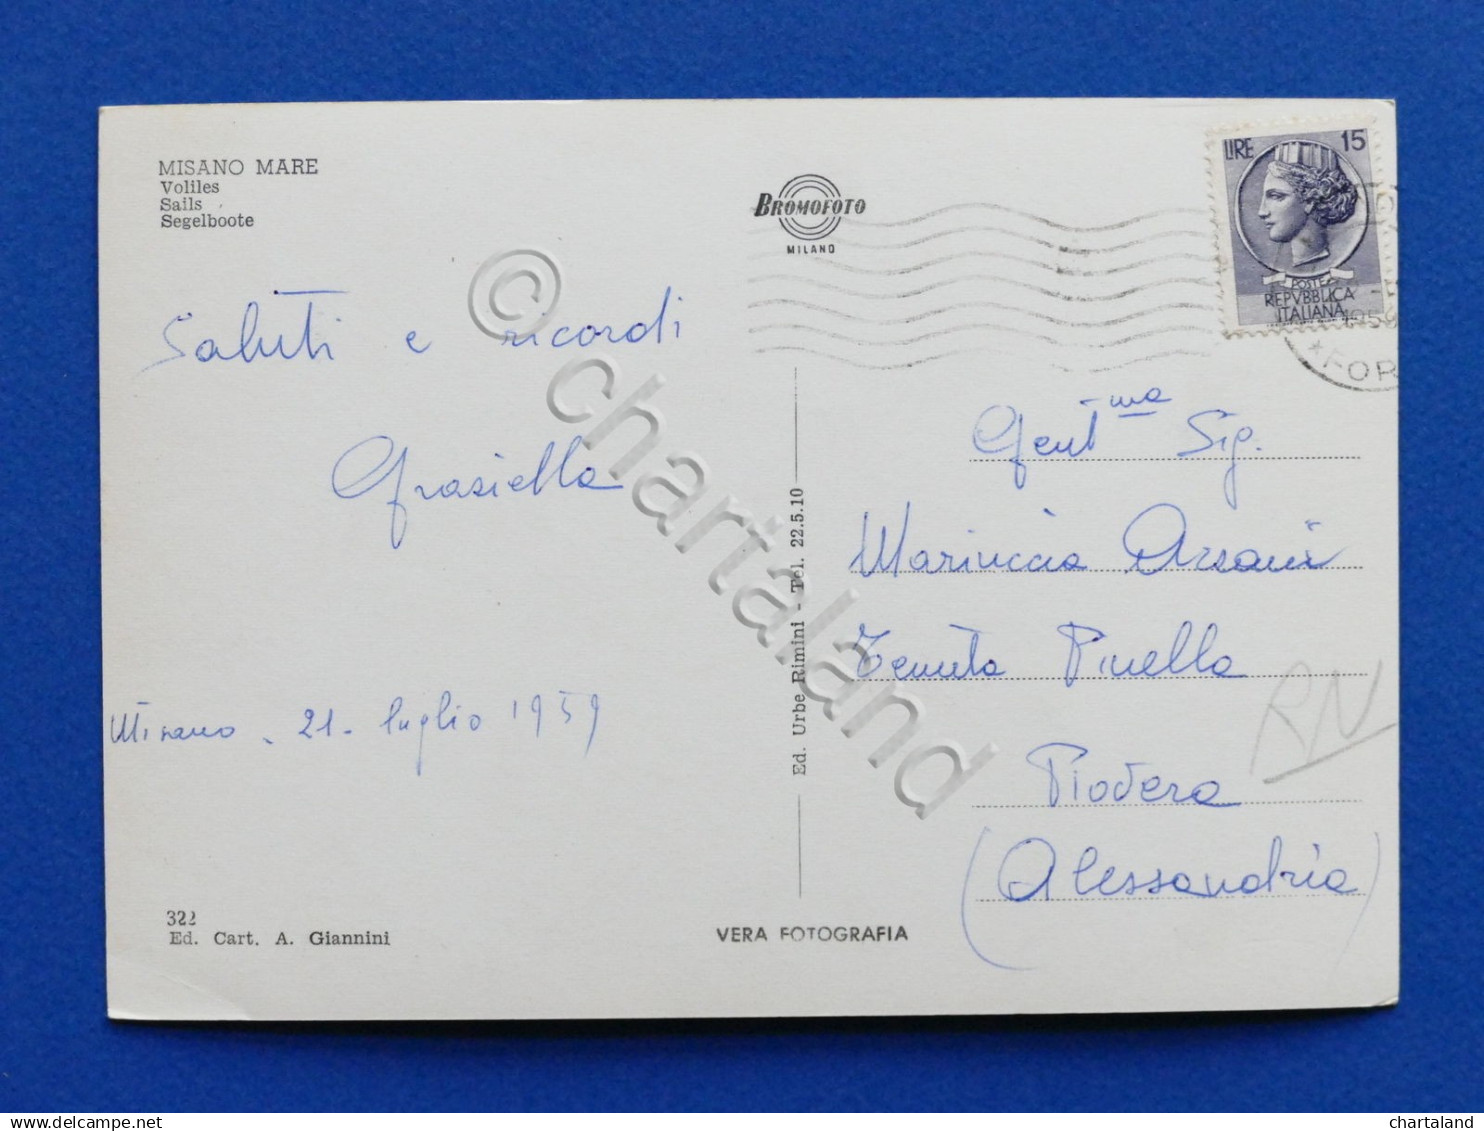 MISANO MARE
Voliles
Sails
Segelboote
BROMOFOTO
MILANO
LIRE 15
POSTE
REPVBBLICA
ITALIANA
*FOR
Saluti e ricordi
Grasiella
Misano - 21 - luglio 1959
Gent.ma Sig.
Mariuccia Arsani
Tenuta Pinella
Piovera
(Alessandria)
RN
Ed. Urbe Rimini - Tel. 22.5.10
322
Ed. Cart. A. Giannini
VERA FOTOGRAFIA
© chartaland
chartaland